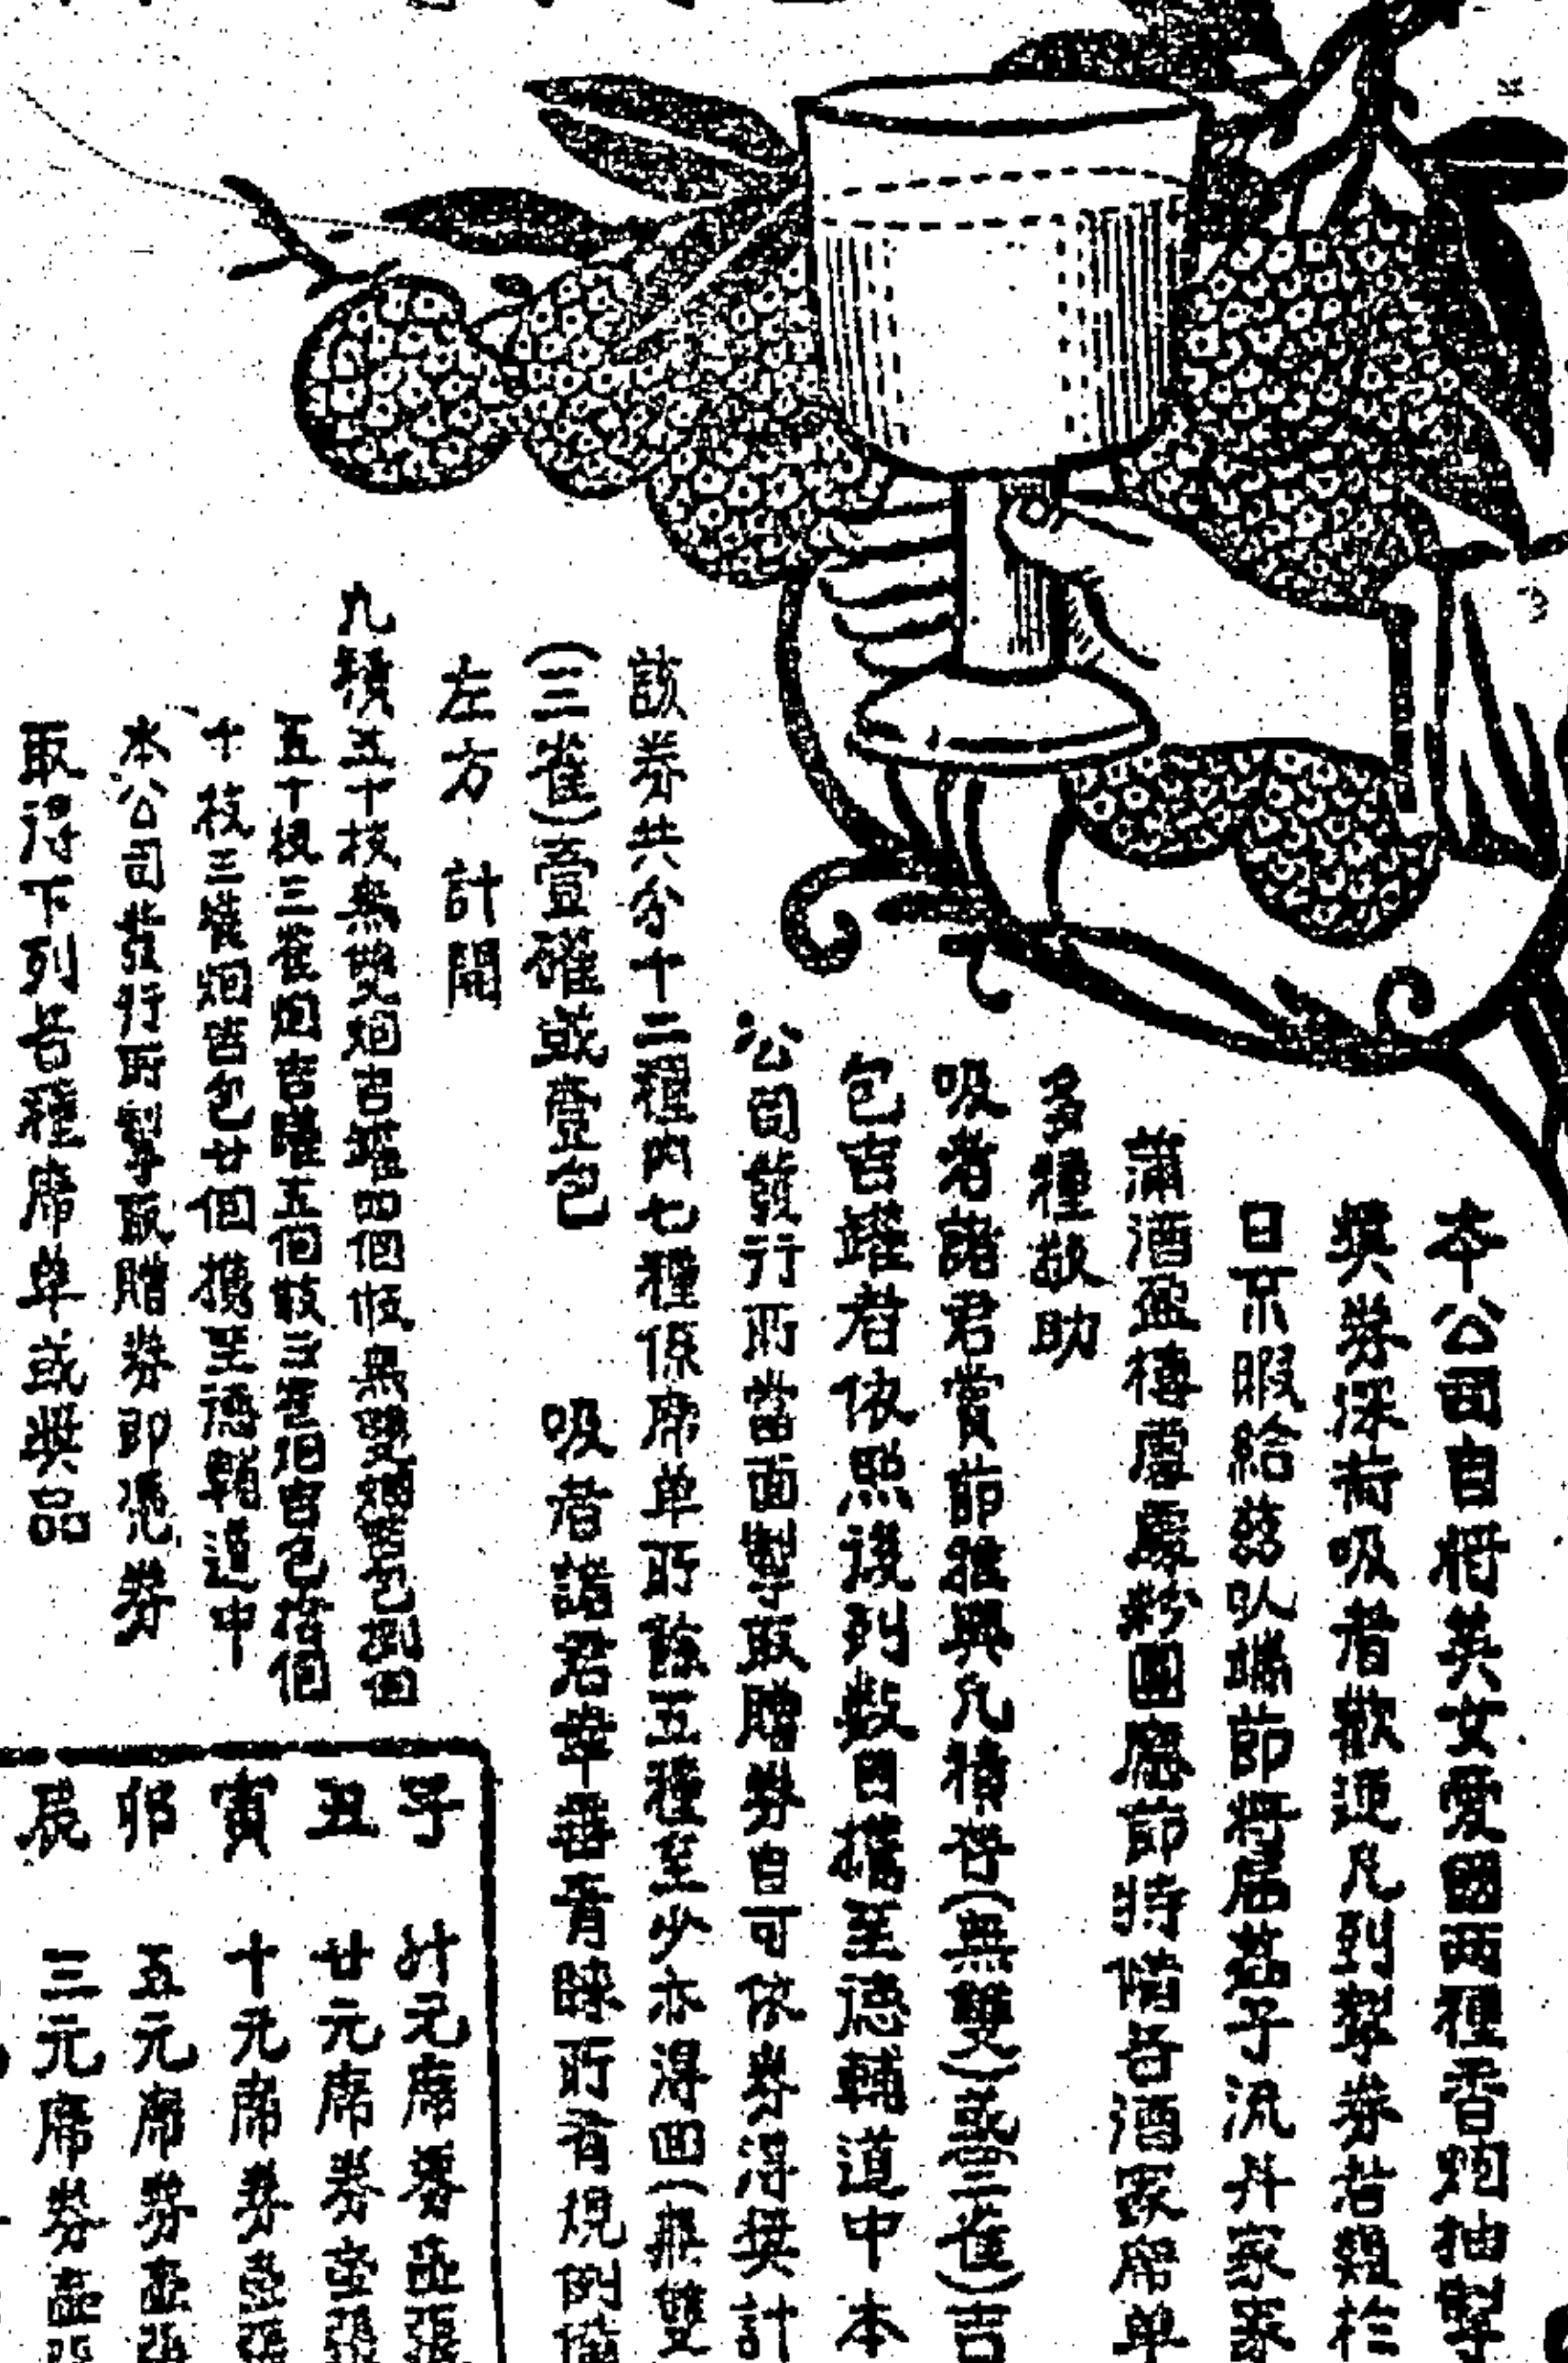 本公司自將英女愛國兩種香烟抽掣
獎券深荷吸者歡迎凡到掣券者類於
日不暇給茲以端節將屆菖子流丹家家
蒲酒盈樽慶粉團應節特備各酒家席单
多種敬助
吸者諸君賞節雅興凡積存(無雙)或(三雀)吉
包吉罐者依照後列數目攜至德輔道中本
公司發行所當面掣取贈券自可依券得獎計
該券共分十二種內七種係席单所餘五種至少亦得回(無雙
(三雀)壹罐或壹包
吸者諸君幸垂青睞所有規例備
左方計開
凡積五十枝無雙烟吉罐四個或無雙烟吉包捌個
五十枝三雀烟吉罐五個或三雀烟吉包拾個
十枝三雀烟吉包廿個攜至德輔道中
本公司發行所掣取贈券即憑券
取得下列各種席单或獎品
子 卅元席券壹張
丑 廿元席券壹張
寅 十元席券壹張
卯 五元席券壹張
辰 三元席券壹張